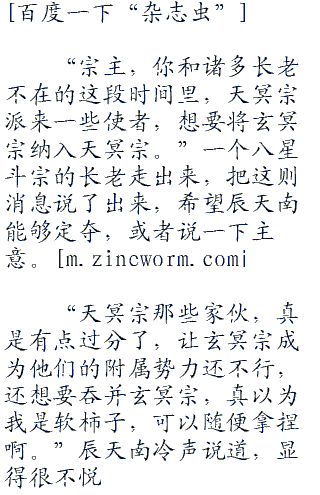 [百度一下“杂志虫”]
“宗主，你和诸多长老
不在的这段时间里，天冥宗
派来一些使者，想要将玄冥
宗纳入天冥宗。”一个八星
斗宗的长老走出来，把这则
消息说了出来，希望辰天南
能够定夺，或者说一下主
意。[m.zincworm.com]
“天冥宗那些家伙，真
是有点过分了，让玄冥宗成
为他们的附属势力还不行，
还想要吞并玄冥宗，真以为
我是软柿子，可以随便拿捏
啊。”辰天南冷声说道，显
得很不悦